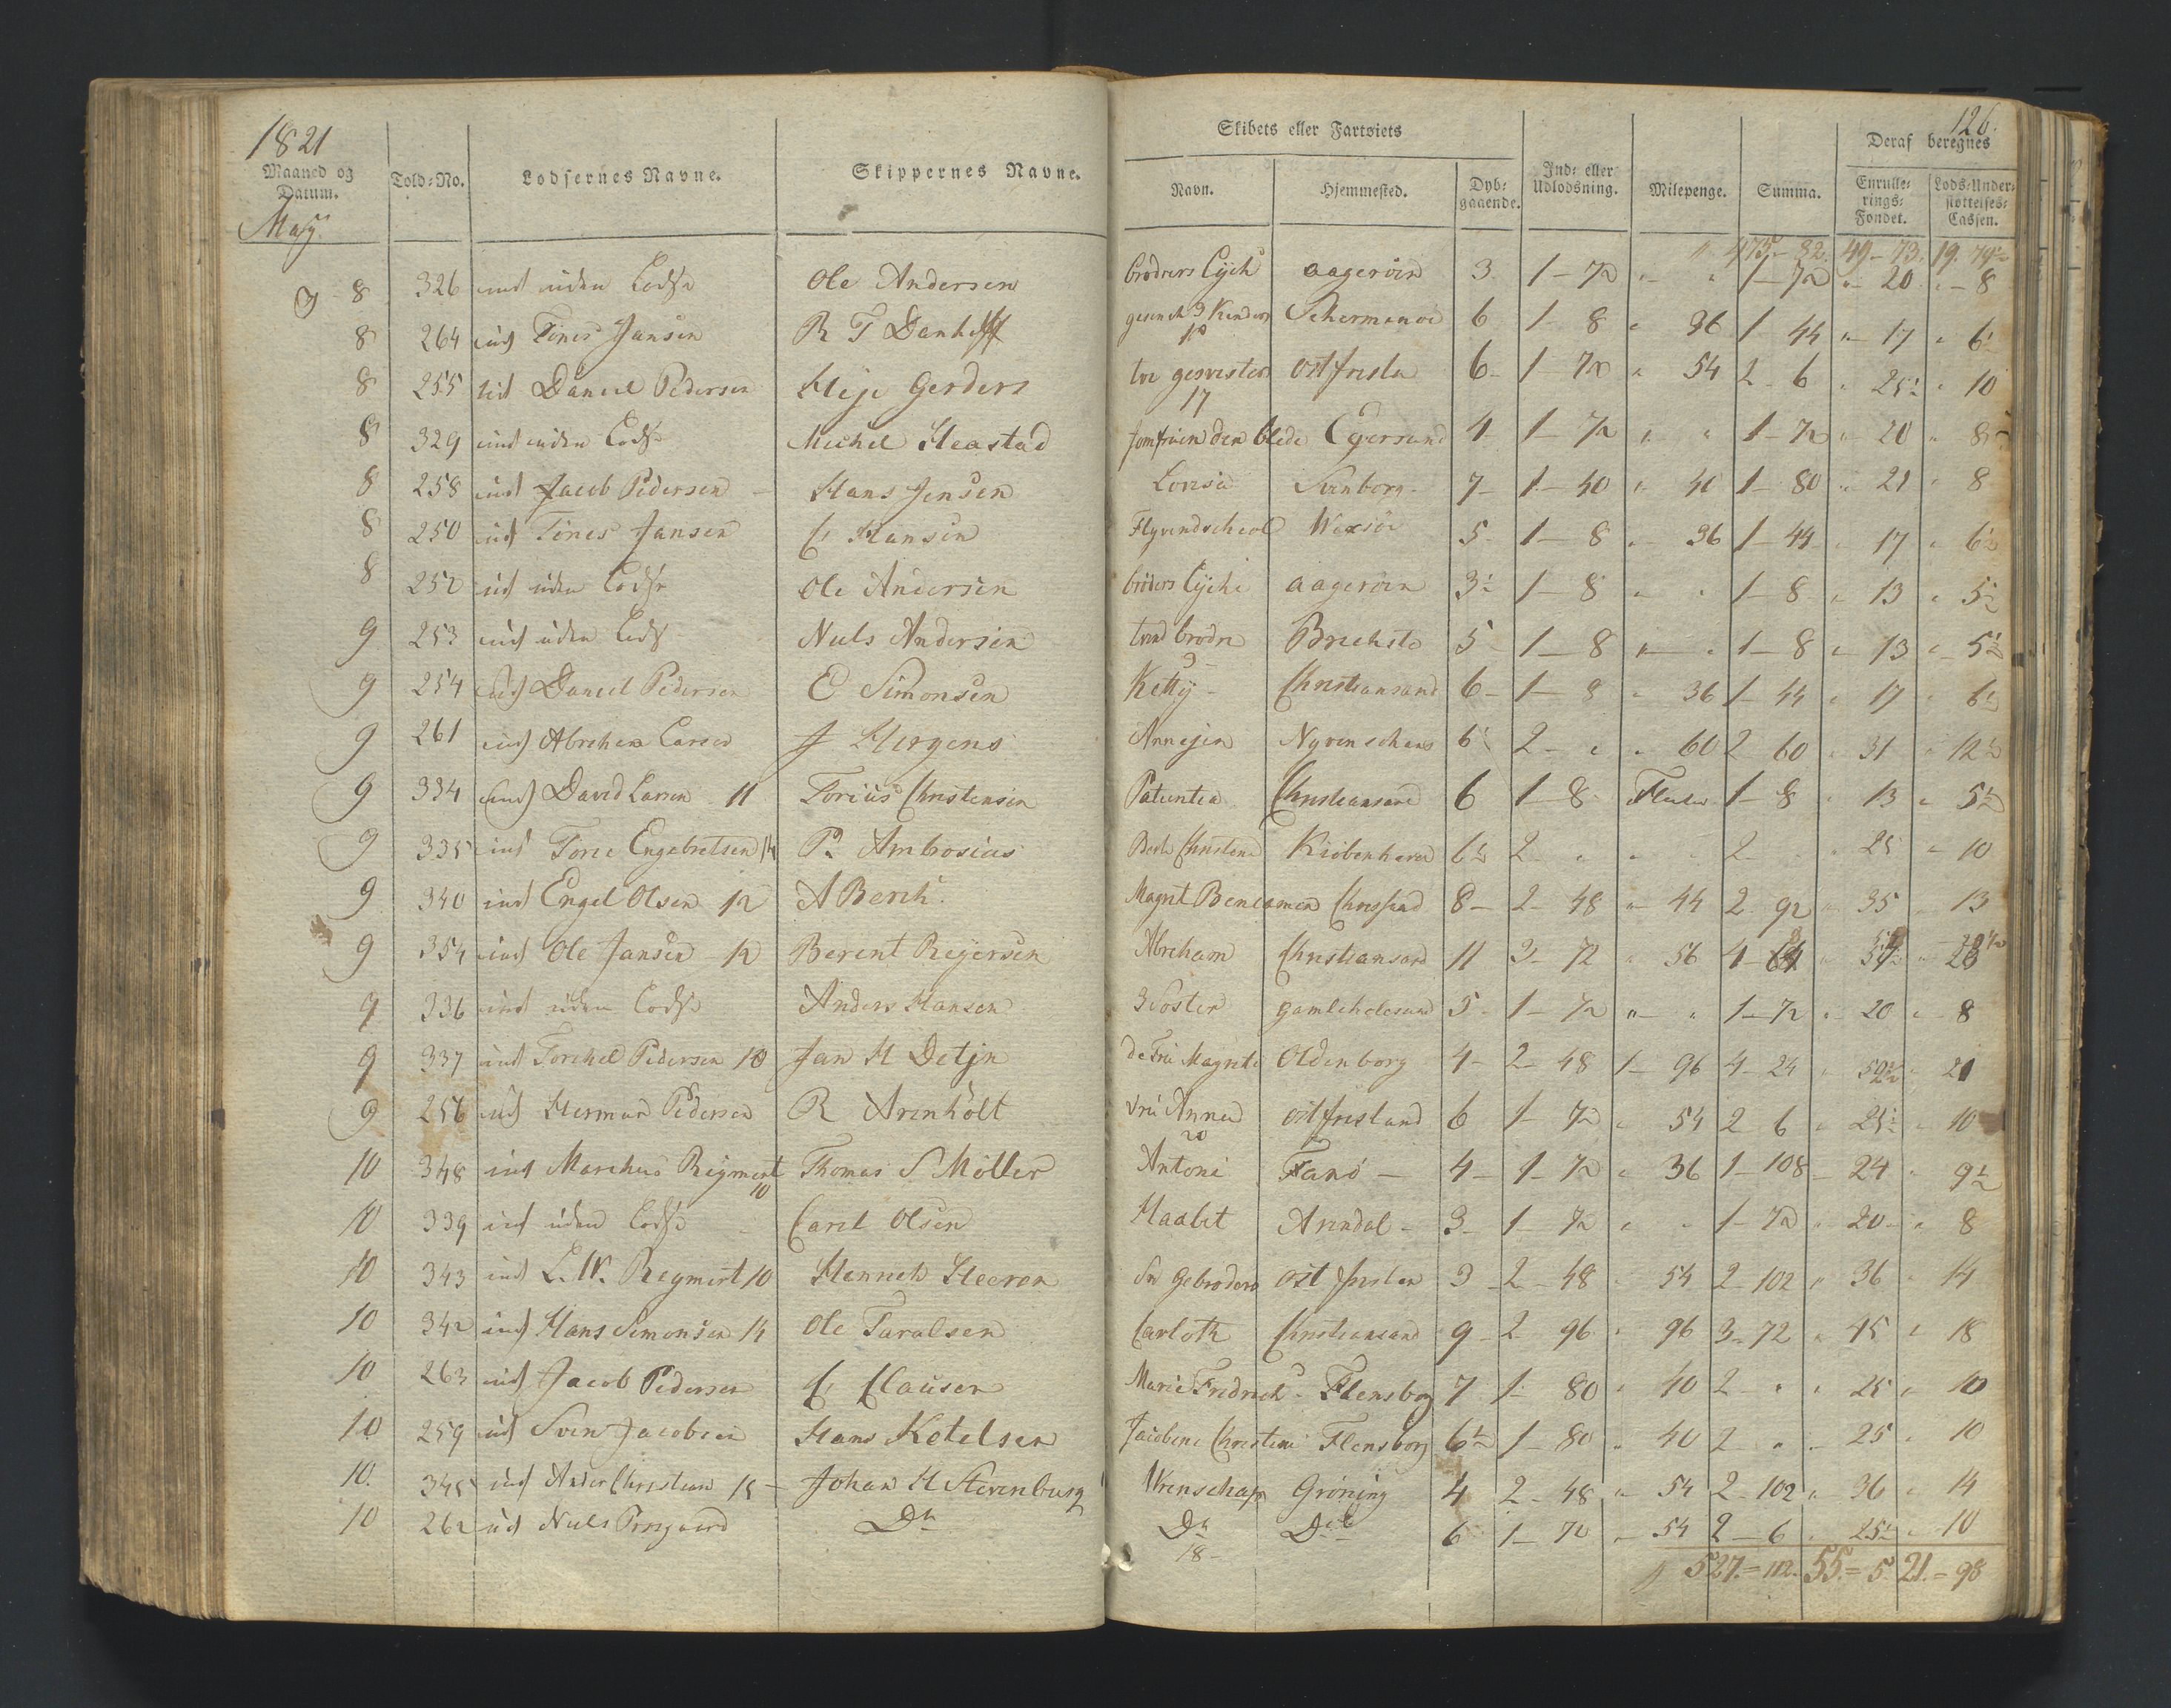 1821
126.
Skibets eller Fartøiets
Deraf beregnes
Maaned og Datum. Told-No. Lodsernes Navne. Skippernes Navne. Navn. Hjemmested. Dybgaaende. Ind- eller Udlodsning. Milepenge. Summa. Enrullerings-Fondet. Lods-Understøttelses-Cassen.
May
475 - 82. 49 - 73. 19. 79½
8 326 ind uden Lodse Ole Andersen brødrers Lycke aagerøen 3. 1 - 72 " " 1 - 72 " 20 " 8
8 264 ud Tines Jansen R T Danhoff gesench 3 Kinders 10 Schermanoe 6 1 8 " 36 1 44 " 17 " 6½
8 255 ud Daniel Pedersen Heje Gerders tre gesvister 17 ostfrisla 6 - 1 72 " 54 2 - 6 " 25½ " 10
8 329 ind uden Lodse Michel Heastad Jomfruen den blide Egersund 4 1 - 72 " " 1 - 72 " 20 " 8
8 258 ud Jacob Pedersen Hans Jensen Lovisa Svinborg 7 - 1 - 40 " 40 1 - 80 " 21 " 8
8 250 ud Tines Jansen C Hansen Flyvendschiold Wexsör 5 - 1 - 8 " 36 1 - 44 " 17 " 6½
8 252 ud uden Lodse Ole Andersen brøders Lycke aagerøen 3½ 1 - 8 " " 1 - 8 " 13 " 5½
9 253 ud uden Lods Niels Andersen tvend brødre Brieksto 5 1 - 8 " " 1 - 8 " 13 " 5½
9 254 ud Daniel Pedersen C Simonsen Ketty Christiansand 6 - 1 - 8 " 36 1 - 44 " 17 " 6½
9 261 ud Abreham Larsen J Hergens Annejen Nyvenschans 6½ 2 - " " 60 2 60 " 31 " 12½
9 334 ind David Larsen 11 Torius Christensen Patientia Christiansand 6 1 - 8 1 - 8 " 13 " 5½
9 335 ind Tore Engebretsen 14 P. Ambrosius Berte Christene Kiøbenhavn 6½ 2 " " " 2 " " 25 " 10
9 340 ind Engel Olsen 12 A Berch Magret Beneamen Chrissand 8 - 2 - 48 " 44 2 - 92 " 35 " 13
9 354 ind Ole Jansen 12 Berent Reyersen Abreham Christiansand 11 3 - 72 " 56 4 -
9 336 ind uden Lodse Anders Hansen 3 Søster gamlehelesund 5 - 1 - 72 " " 1 - 72 " 20 " 8
9 337 ind Torchel Pedersen 10 Jan H Detjn de Frie Magrete Oldenborg 4 - 2 - 48 1 - 96 4 - 24 " 50½ " 21
9 256 ud Herman Pedersen R Arenholt Vrü Anna 20 ostfrisland 6 1 - 72 " 54 2 6 " 25½ " 10
10 348 ind Marchus Reymert 10 Thomas S Møller Antoni Fanö - 4 - 1 - 72 " 36 1 - 108 - 24 " 9½
10 339 ind uden Lodse Carel Olsen Haabet Arendal - 3 - 1 - 72 " " 1 - 72 " 20 - " 8
10 343 ind L. W. Reymert 10 Hennech Heeren Sri Gebroders ost frislan 3 - 2 - 48 " 54 2 - 102 " 36 " 14
10 342 ind Hans Simonsen 14 Ole Taralsen Carloth Christiansand 9 - 2 - 96 " 96 3 - 72 " 45 " 18
10 263 ud Jacob Pedersen C Clausen Marie Fredrich - Flensborg 7 1 - 80 " 40 2 - " " 25 " 10
10 259 ud Sven Jacobsen Hans Ketelsen Jacobine Christine Flensborg 6½ 1 - 80 " 40 2 " " 25 " 10
10. 345 ind Ander Christiane 15 - Johan H Stevenburg Wrenschap Gröning 4 2 - 48 " 54 2 - 102 " 36 " 14
10 262 ud Niels Prosgaard Do Do 18 - Do 6 1 - 72 " 54 2 - 6 " 25½ " 10
527. = 112. 55. = 5. 21. = 98